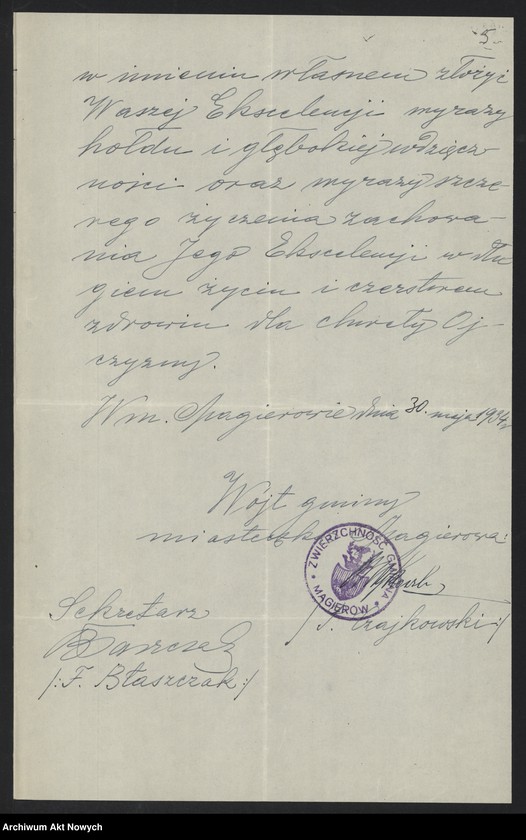 5
w imieniu własnem złożyć
Waszej Ekscelencji wyrazy
hołdu i głębokiej wdzięcz-
ności oraz wyrazy szcze
rego życzenia zachowa-
nia Jego Ekscelencji w dłu
giem życiu i czerstwem
zdrowiu dla chwały Oj-
czyzny.
W m. Magierowie dnia 30. maja 1934 r.
Wójt gminy
miasteczka Magierowa:
ZWIERZCHNOŚĆ GMINNA
MAGIERÓW
Sekretarz
/: Czajkowski :/
/: F. Błaszczak :/
Archiwum Akt Nowych